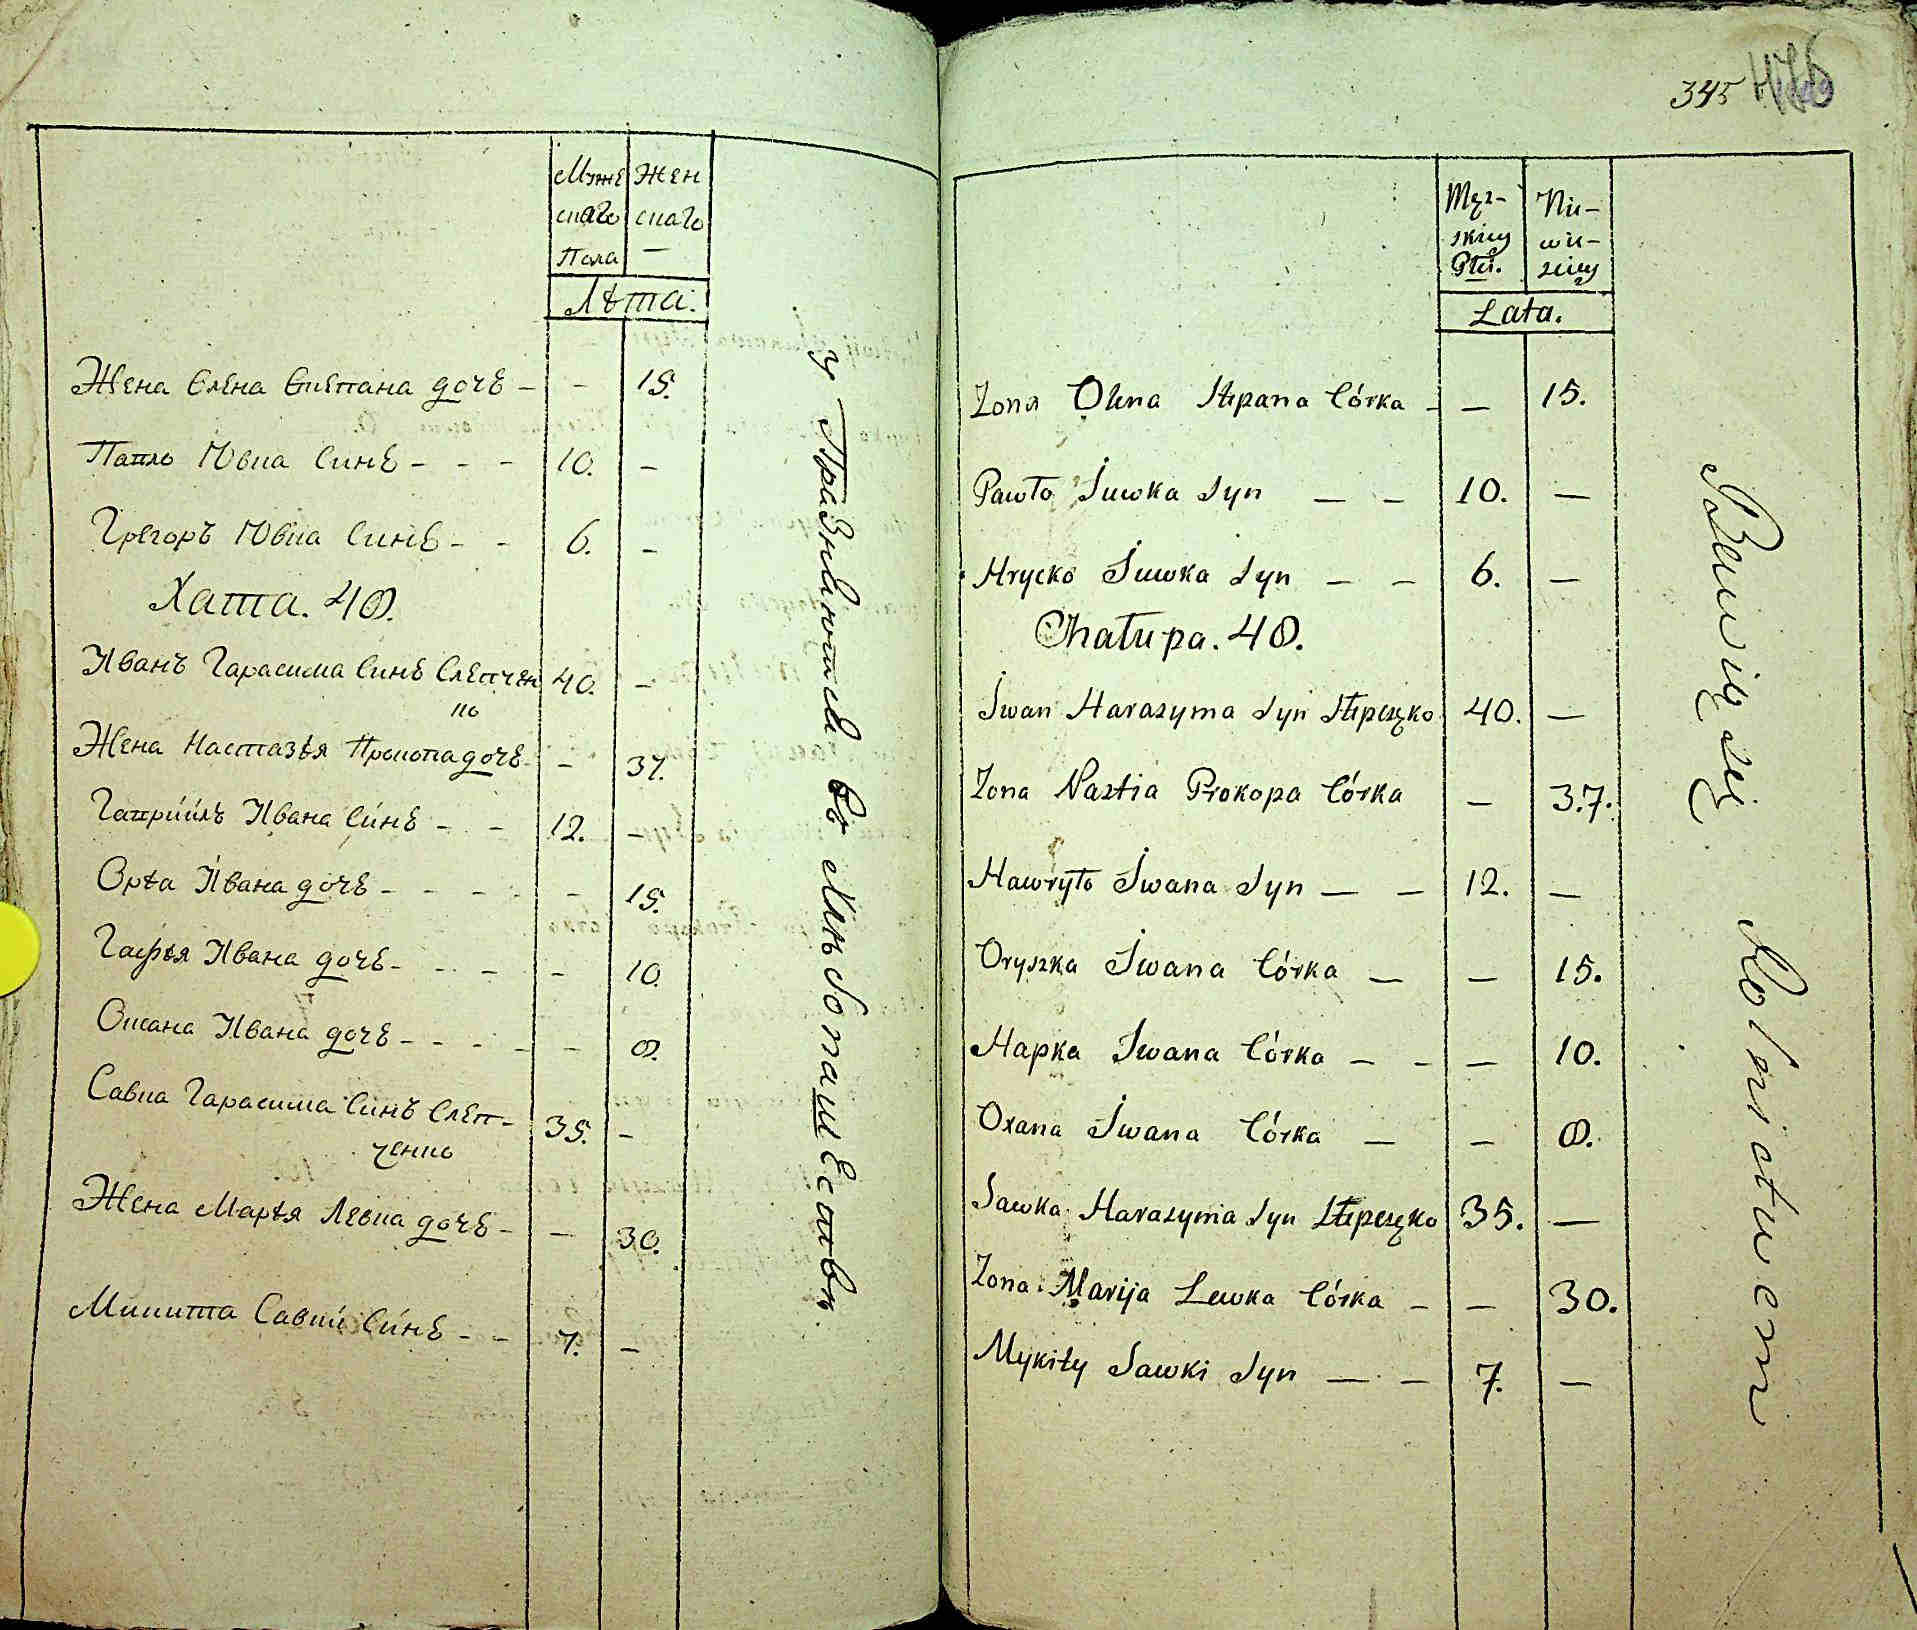 Муже
скаго
Пола
Жен
скаго
—
Лѣта.
Жена Елена Степана дочь - - 15.
Павло Ювка Синъ - - - 10. -
Грегоръ Ювка Синъ - - 6. -
Хата. 48.
Иванъ Гарасима Синъ Слепчен
ко 40. -
Жена Настазѣя Прокопа дочь - - 37.
Гавріилъ Ивана Синъ - - 12. -
Орѣа Ивана дочь - - - - - 15.
Гафѣя Ивана дочь - - - - 10.
Оксана Ивана дочь - - - - - 8.
Савка Гарасима Синъ Слеп-
ченко 35. -
Жена Марѣя Левка дочь - - 30.
Микита Савки Синъ - - 7. -
упражняються въ Хлѣбопашествѣ
345
Męz-
skiey
Płci.
Nie-
wie-
sciey
Lata.
Zona Olena Stepana Córka - — 15.
Pawło Juwka Syn — — 10. —
Hrycko Juwka Syn — — 6. —
Chałupa. 48.
Jwan Harasyma Syn Slepczęko 40. —
Zona Nastia Prokopa Córka — 37.
Hawryło Jwana Syn — — 12. —
Oryszka Jwana Córka — — 15.
Hapka Jwana Córka — - — 10.
Oxana Jwana Córka — — 8.
Sawka Harasyma Syn Slepczęko 35. —
Zona Marija Lewka Córka - — 30.
Mykity Sawki Syn — — 7. —
Bawią się Rolnictwem